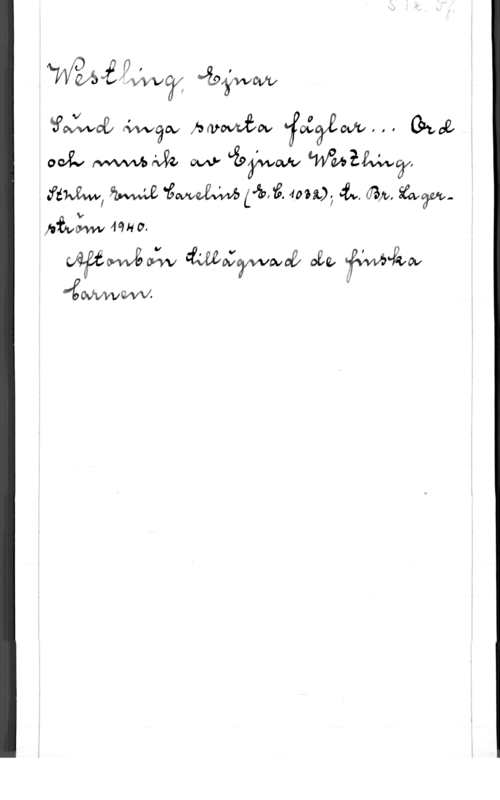 Westling, Ejnar
Sänd inga svarta fåglar... Ord
och musik av Ejnar Westling.
Sthlm, Emil Carelius (E.C. 1032); tr. Br. Lager-
ström 1940.
Aftonbön tillägnad de finska
barnen.